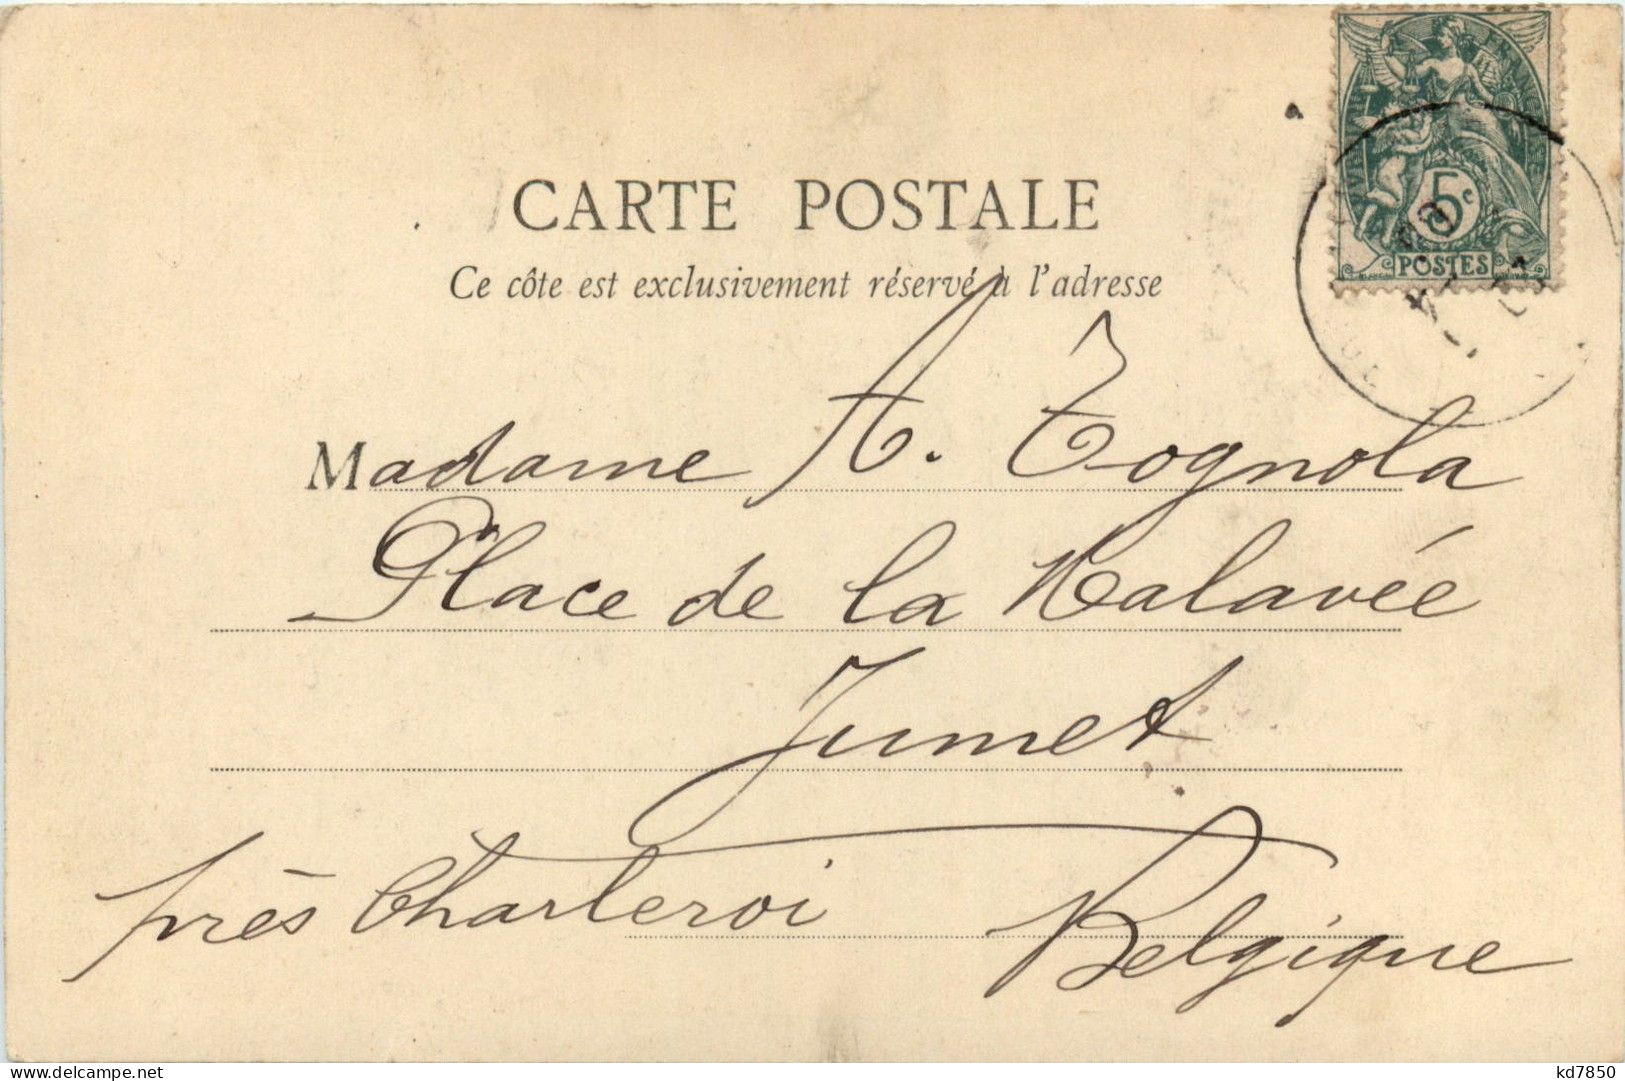 CARTE POSTALE
Ce côte est exclusivement réservé à l'adresse
5c
POSTES
Madame A. Tognola
Place de la Kalavée
Jumet
près Charleroi Belgique
delcampe.net
kd7850